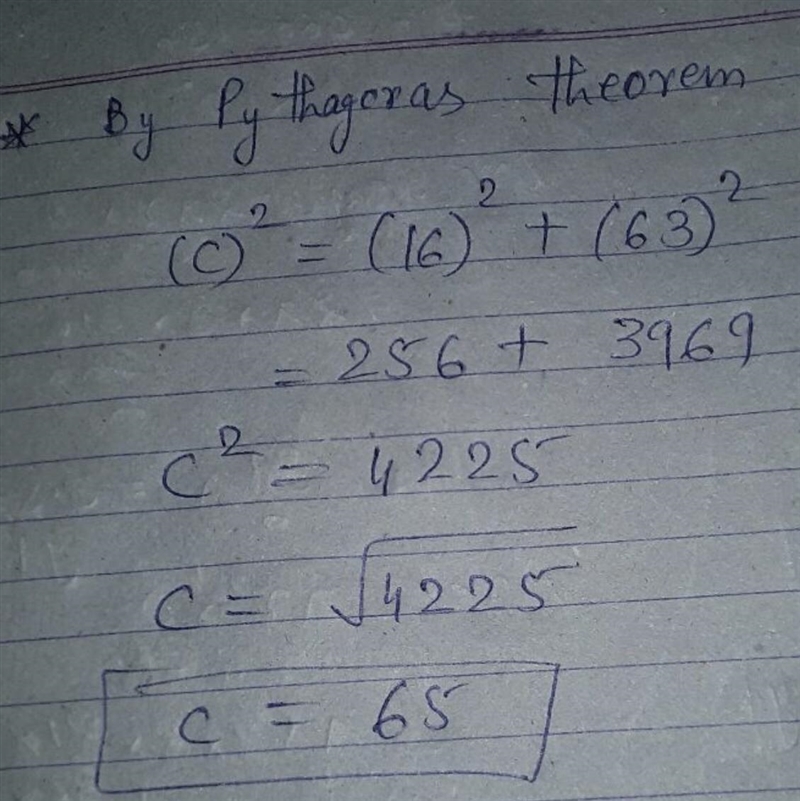 * By Pythagoras theorem
(c)² = (16)² + (63)²
= 256 + 3969
c² = 4225
c = √4225
c = 65